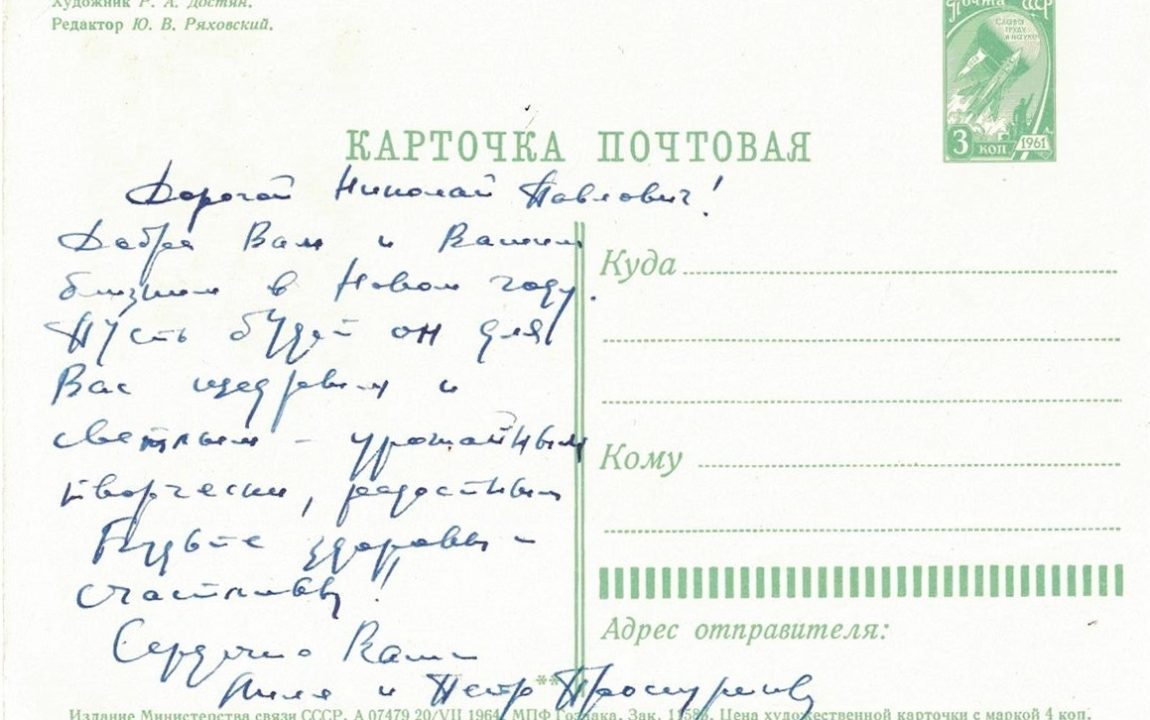 Художник Р. А. Достян.
Редактор Ю. В. Ряховский.
Почта СССР
СЛАВА
ТРУДУ
И НАУКЕ!
3 коп 1961
КАРТОЧКА ПОЧТОВАЯ
Дорогой Николай Павлович!
Добра Вам и Вашим
близким в Новом году.
Пусть будет он для
Вас щедрым и
светлым – урожайным
творчески, радостным
Будьте здоровы и
счастливы!
Сердечно Ваши
Лиля и Петр Проскурины
Куда
Кому
Адрес отправителя:
**
Издание Министерства связи СССР. А 07479 20/VII 1964. МПФ Гознака. Зак. 11586. Цена художественной карточки с маркой 4 коп.